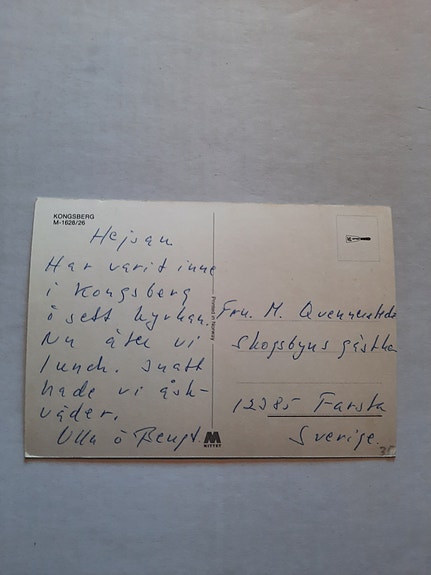 KONGSBERG
M-1628/26
Hejsan
Har varit inne
i Kongsberg
ö sett kyrkan.
Nu äter vi
lunch. Inatt
hade vi åsk-
väder.
Ulla ö Bengt.
Printed in Norway
M
MITTET
Fru. M. Quennerstedt
Skogsbyns gästha
12385 Farsta
Sverige.
35